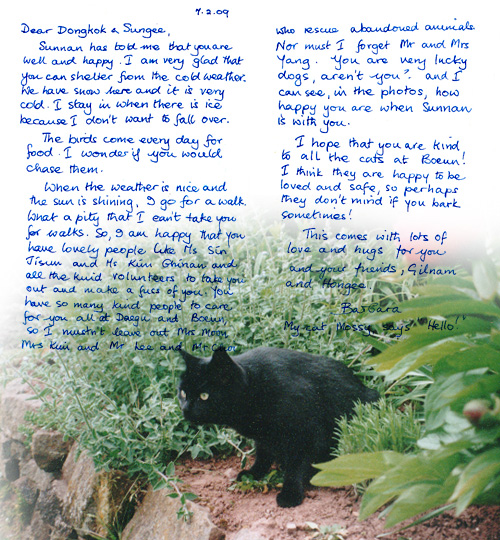 7.2.09
Dear Dongkok & Sungee,
Sunnan has told me that you are
well and happy. I am very glad that
you can shelter from the cold weather.
We have snow here and it is very
cold. I stay in when there is ice
because I don't want to fall over.
The birds come every day for
food. I wonder if you would
chase them.
When the weather is nice and
the sun is shining, I go for a walk.
What a pity that I can't take you
for walks. So, I am happy that you
have lovely people like Ms Sin
Jisun and Ms Kim Ghinan and
all the kind volunteers to take you
out and make a fuss of you. You
have so many kind people to care
for you all at Daegu and Boeun,
so I mustn't leave out Mrs Moon
Mrs Kim and Mr Lee and Mr
who rescue abandoned animals
Nor must I forget Mr and Mrs
Yang. You are very lucky
dogs, aren't you? and I
can see, in the photos, how
happy you are when Sunnan
is with you.
I hope that you are kind
to all the cats at Boeun!
I think they are happy to be
loved and safe, so perhaps
they don't mind if you bark
sometimes!
This comes with lots of
love and hugs for you
and your friends, Gilnam
and Hongee.
Barbara
My cat Mossy says "Hello!"